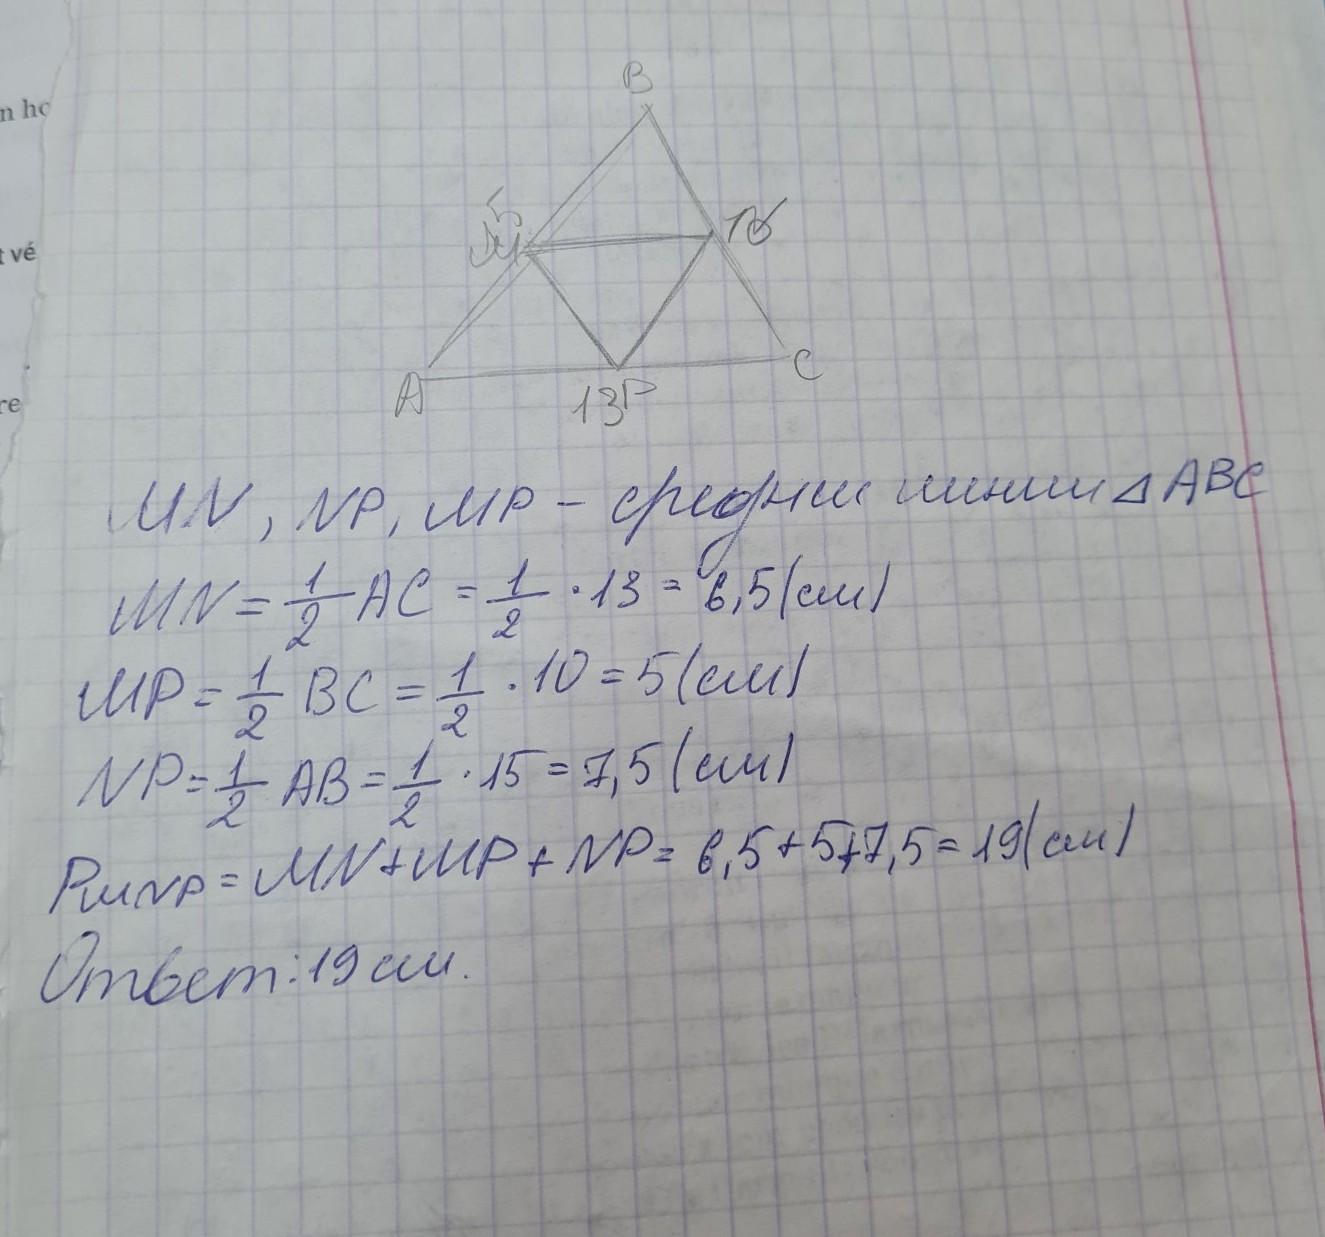 n ho
t vé
re
B
15
M
10
N
A
13
P
C
MN, NP, MP – средние линии △ ABC
MN = 1/2 AC = 1/2 · 13 = 6,5 (см)
MP = 1/2 BC = 1/2 · 10 = 5 (см)
NP = 1/2 AB = 1/2 · 15 = 7,5 (см)
PMNP = MN + MP + NP = 6,5 + 5 + 7,5 = 19 (см)
Ответ: 19 см.